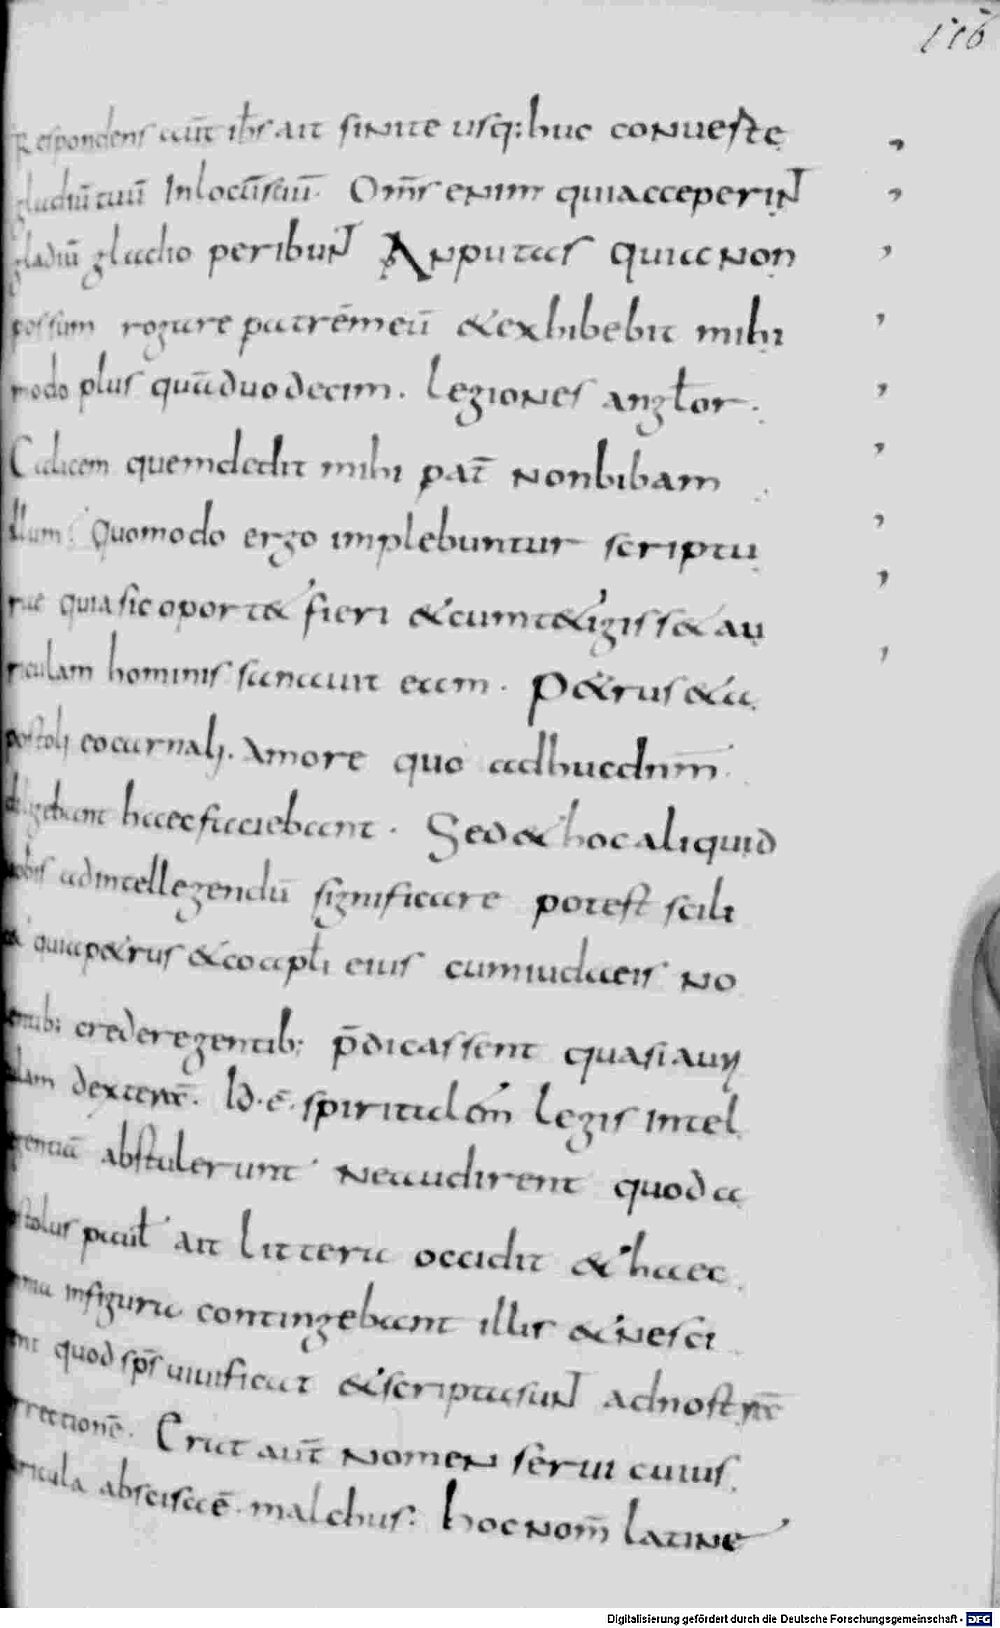 116
Respondens aut̄ ih̄s ait sinite usq; huc conuerte
gladiū tuū Inlocū suū. Om̄s enim quiacceperint
gladiū gladio peribunt Anputas quia non
possum rogare patrē meū & exhibebit mihi
modo plus quā duodecim. legiones angłor.
Calicem quem dedit mihi pat̄ non bibam
illum. Quomodo ergo implebuntur scriptu
rae quia sic oport& fieri & cum t&igiss& au
riculam hominis sanauit eam. P&rus & a
postoli eo carnali. Amore quo adhuc dn̄m
diligebant haec faciebant. Sed & hoc aliquid
nobis ad intellegendū significare potest scili
c& quia p&rus & coapłi eius cum iudaeis no
lentib; credere gentib; p̄dicassent quasi auri
culam dexterā. Id. ē. spiritalem legis Intel
legentiā abstulerunt ne audirent quod a
postolus pauł ait littera occidit & haec
omnia in figura contingebant illis & nesci
unt quod sp̄s uiuificat & scripta sunt ad nostrā
correctionē. Erat aut̄ nomen serui cuius
auricula abscisa ē. malchus. hoc nom̄ latine
Digitalisierung gefördert durch die Deutsche Forschungsgemeinschaft - DFG